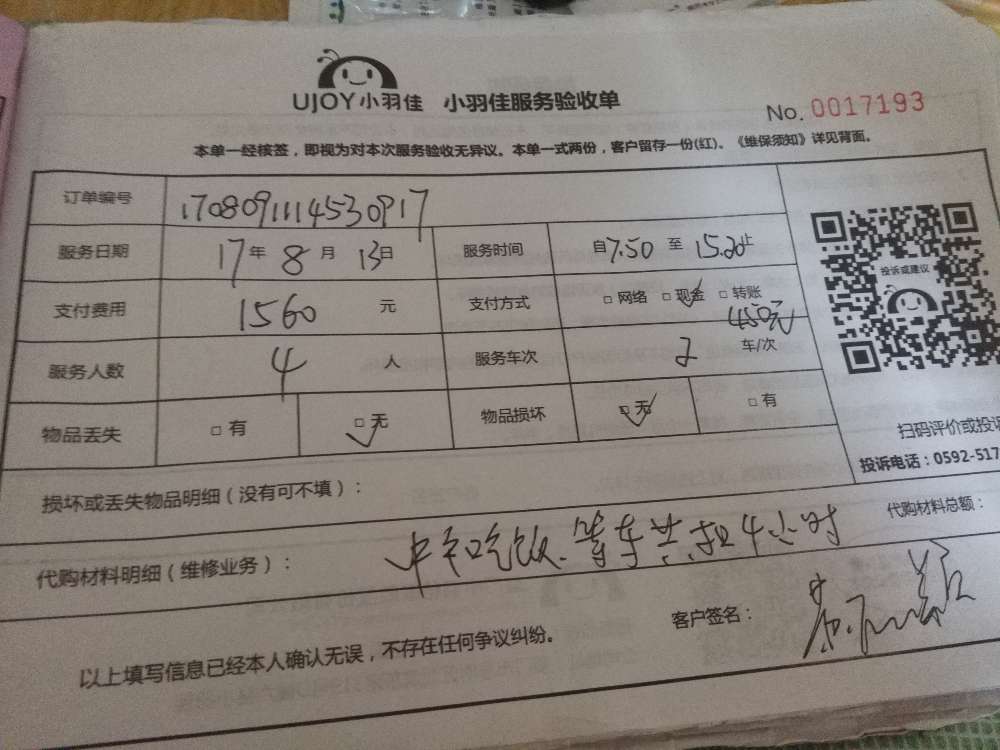 UJOY小羽佳 小羽佳服务验收单
No. 0017193
本单一经核签，即视为对本次服务验收无异议。本单一式两份，客户留存一份(红)。《维保须知》详见背面。
订单编号 17080911114530917
服务日期 17年 8月 13日 服务时间 自7.50 至 15.20止
投诉或建议
支付费用 1560 元 支付方式 □ 网络 □ 现金 □ 转账
450元
服务人数 4 人 服务车次 2 车/次
物品丢失 □ 有 □ 无 物品损坏 □ 无 □ 有
扫码评价或投诉
投诉电话：0592-517
损坏或丢失物品明细（没有可不填）：
代购材料总额：
代购材料明细（维修业务）： 中午吃饭、等车共扣4小时
客户签名：
以上填写信息已经本人确认无误，不存在任何争议纠纷。